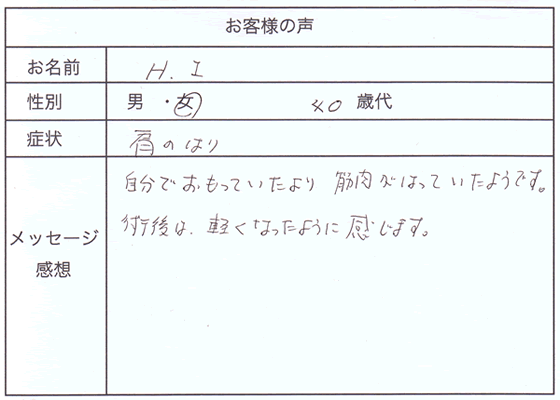 お客様の声
お名前 H. I
性別 男 ・ 女 40 歳代
症状 肩のはり
メッセージ
感想
自分でおもっていたより 筋肉がはっていたようです。
術後は、軽くなったように感じます。